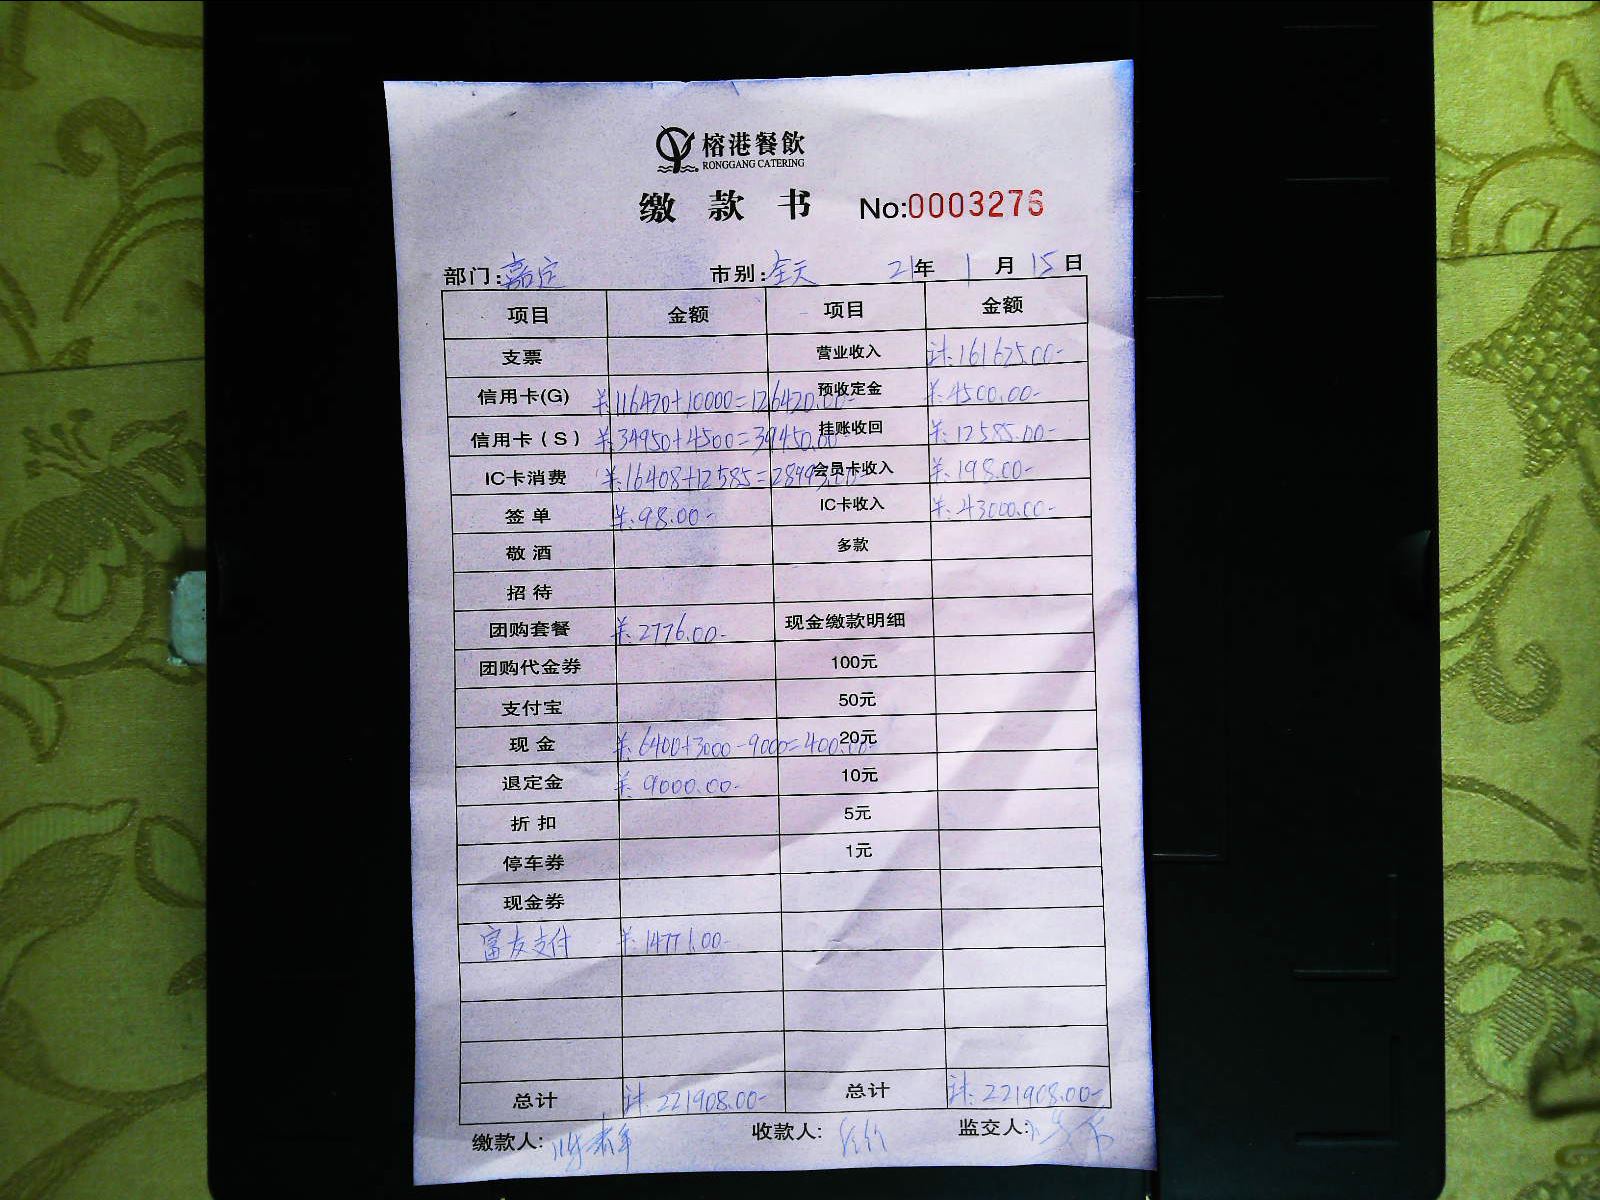 榕港餐飲
RONGGANG CATERING
缴款书 No:0003276
部门:嘉定 市别:全天 21年1月15日
项目 金额 项目 金额
支票 营业收入 计:161625.00-
信用卡(G) ¥:116420+10000=126420.00- 预收定金 ¥:4500.00-
信用卡(S) ¥:34950+4500=39450.00- 挂账收回 ¥:12585.00-
IC卡消费 ¥:16408+12585=28993.00- 会员卡收入 ¥:198.00-
签单 ¥:98.00- IC卡收入 ¥:43000.00-
敬酒 多款
招待
团购套餐 ¥:2776.00- 现金缴款明细
团购代金券 100元
支付宝 50元
现金 ¥:6400+3000-9000=400.00- 20元
退定金 ¥:9000.00- 10元
折扣 5元
停车券 1元
现金券
富友支付 ¥:14771.00-
总计 计:221908.00- 总计 计:221908.00-
缴款人: 收款人: 监交人: